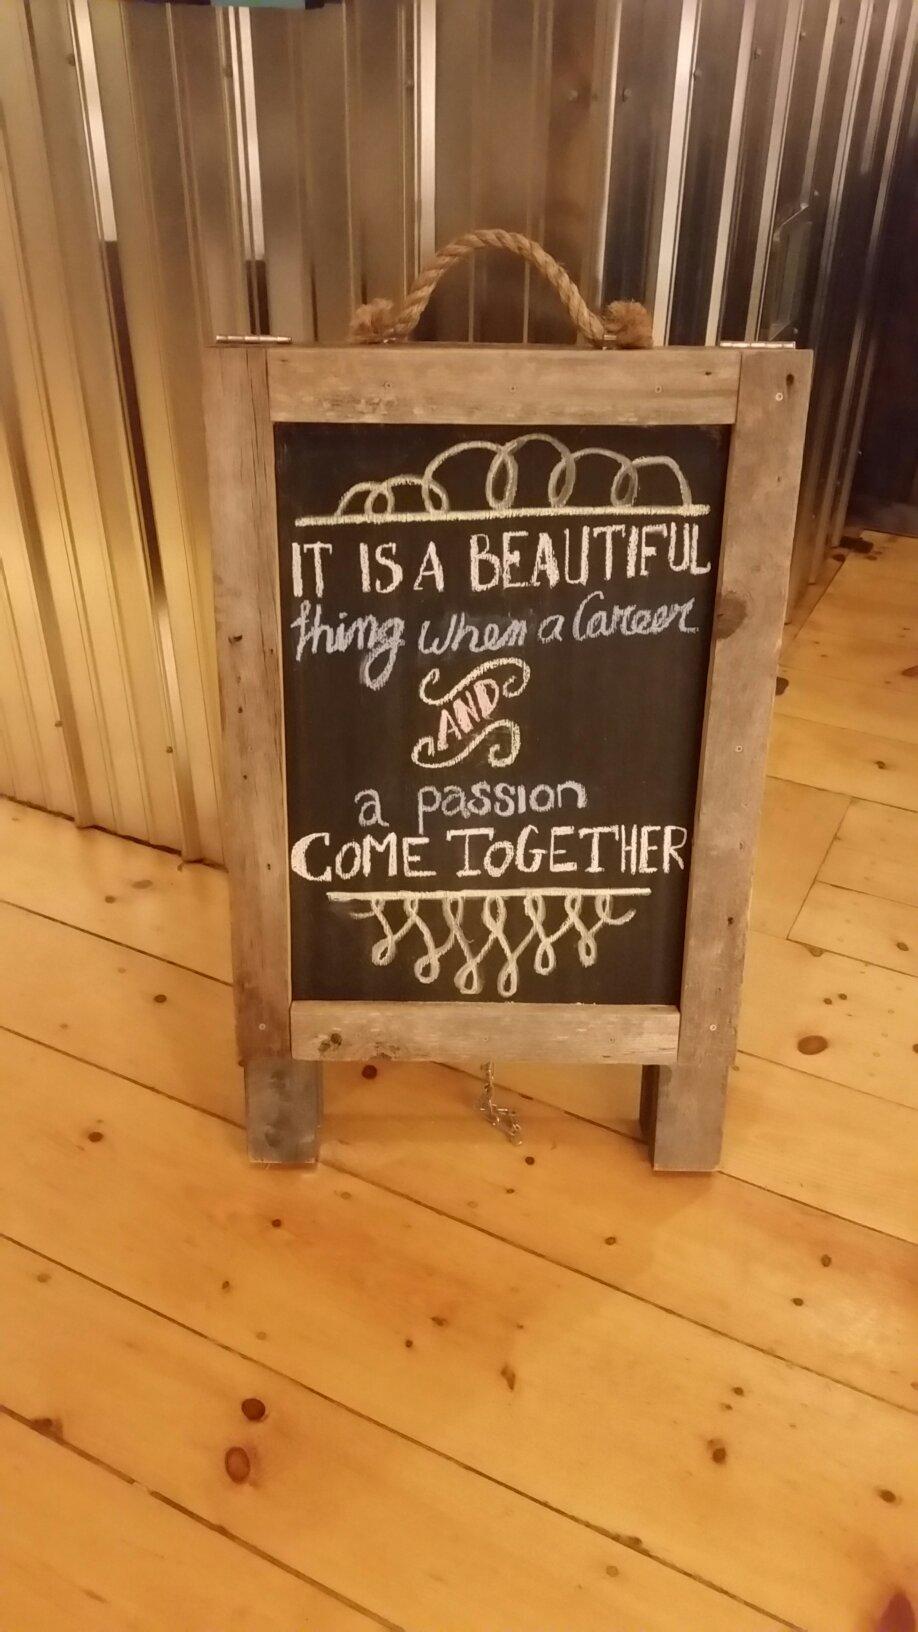 IT IS A BEAUTIFUL
thing when a Career
AND
a passion
COME TOGETHER